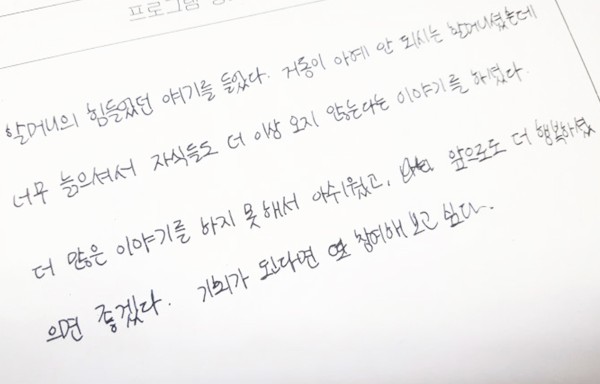 프로그램
할머니의 힘들었던 얘기를 들었다. 거동이 아예 안 되시는 할머니셨는데
너무 늙으셔서 자식들도 더 이상 오지 않는다는 이야기를 하셨다.
더 많은 이야기를 하지 못해서 아쉬웠고, 앞으로도 더 행복하셨
으면 좋겠다. 기회가 된다면 또 참여해 보고 싶다.